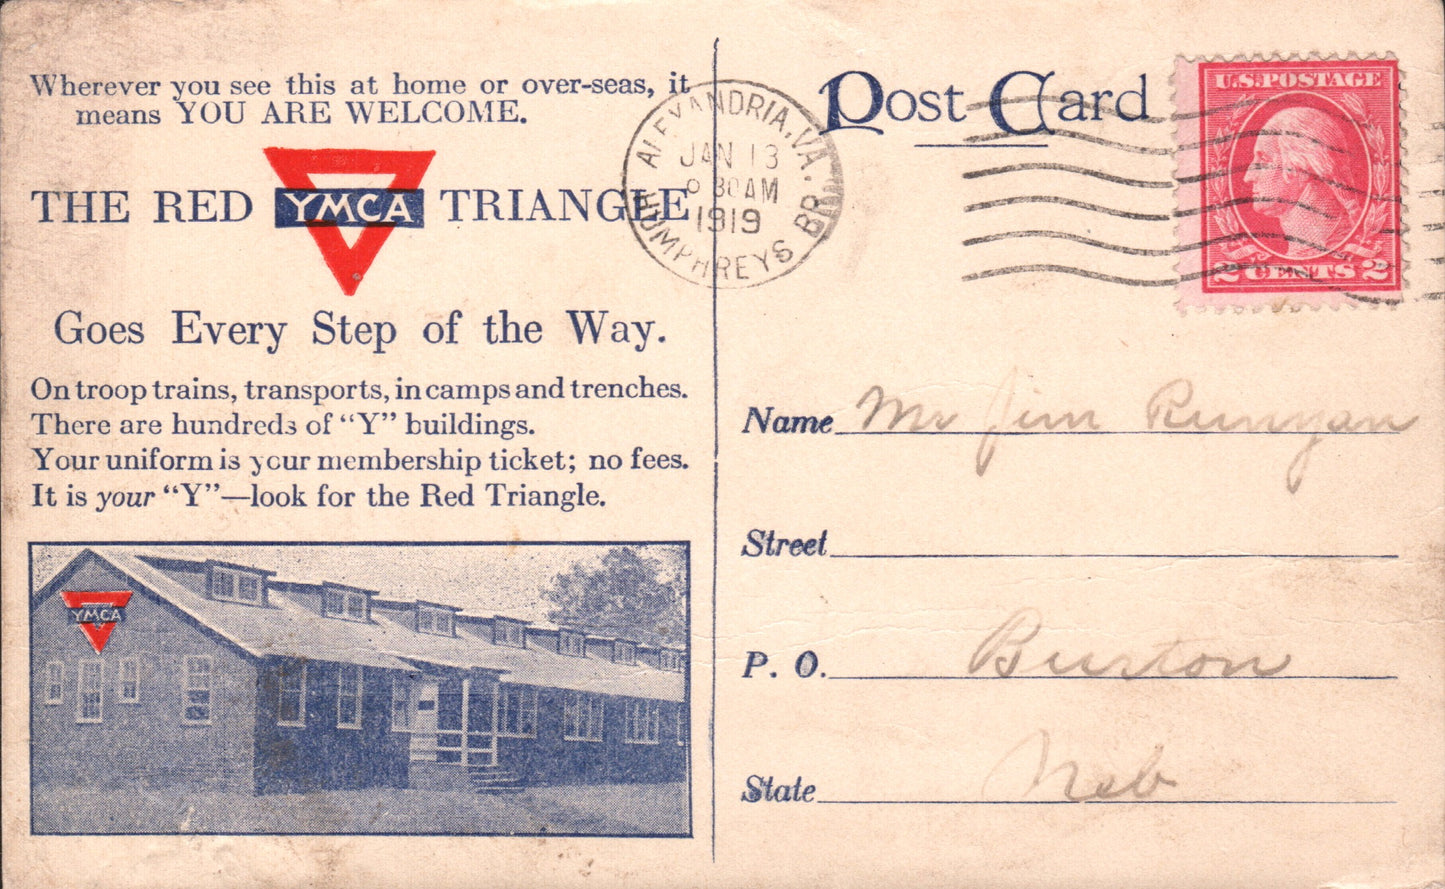 Wherever you see this at home or over-seas, it
means YOU ARE WELCOME.
THE RED YMCA TRIANGLE
Goes Every Step of the Way.
On troop trains, transports, in camps and trenches.
There are hundreds of "Y" buildings.
Your uniform is your membership ticket; no fees.
It is your "Y"—look for the Red Triangle.
YMCA
ALEXANDRIA, VA.
JAN 13
30 AM
1919
HUMPHREYS BR.
Post Card
U.S. POSTAGE
2 CENTS 2
Name Mr Jim Runyan
Street
P. O. Burton
State Neb